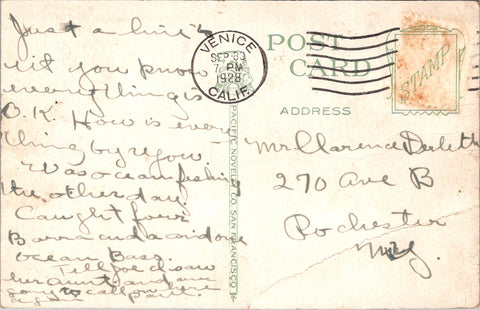 Just a line to
let you know
everything is
O.K. How is every
thing by you.
Was ocean fishing
the other day.
Caught four
Barracuda and one
ocean Bass.
Tell Joe I saw
her aunt and am
going to call on her
again
VENICE
SEP 30
7 PM
1928
CALIF.
POST
CARD
STAMP
ADDRESS
PACIFIC NOVELTY CO SAN FRANCISCO
Mr. Clarence
270 Ave B
Rochester
N.Y.